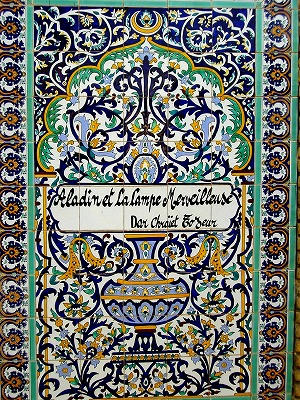 Aladin et La Lampe Merveilleuse
Dar Chraiet Tozeur